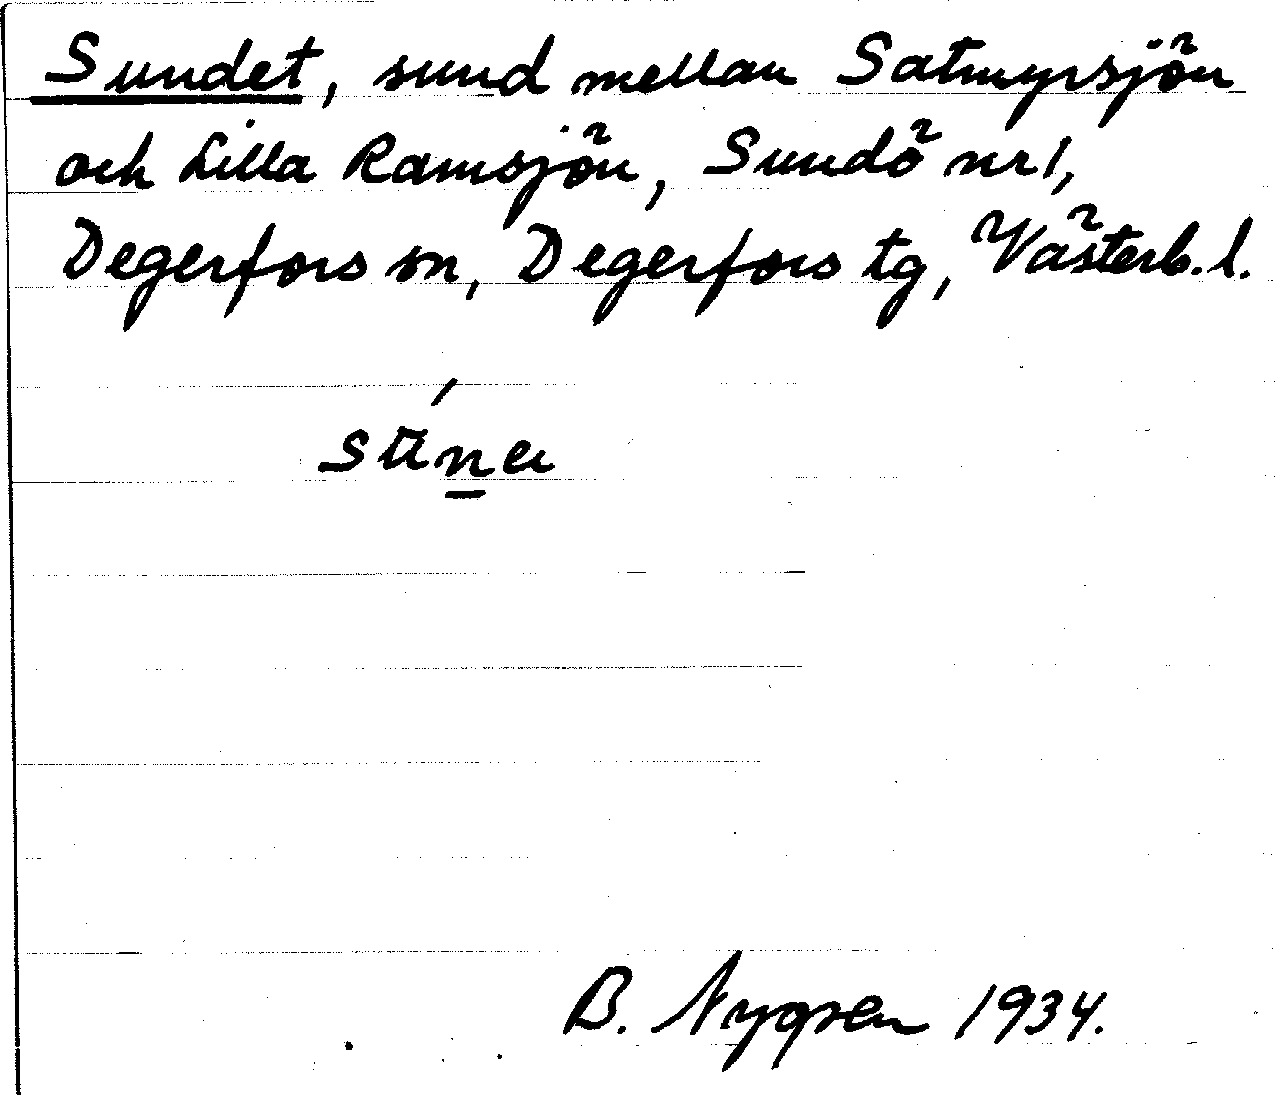 Sundet, sund mellan Satmyrsjön
och Lilla Ramsjön, Sundö nr 1,
Degerfors sn, Degerfors tg, Västerb. l.
B. Nygren 1934.